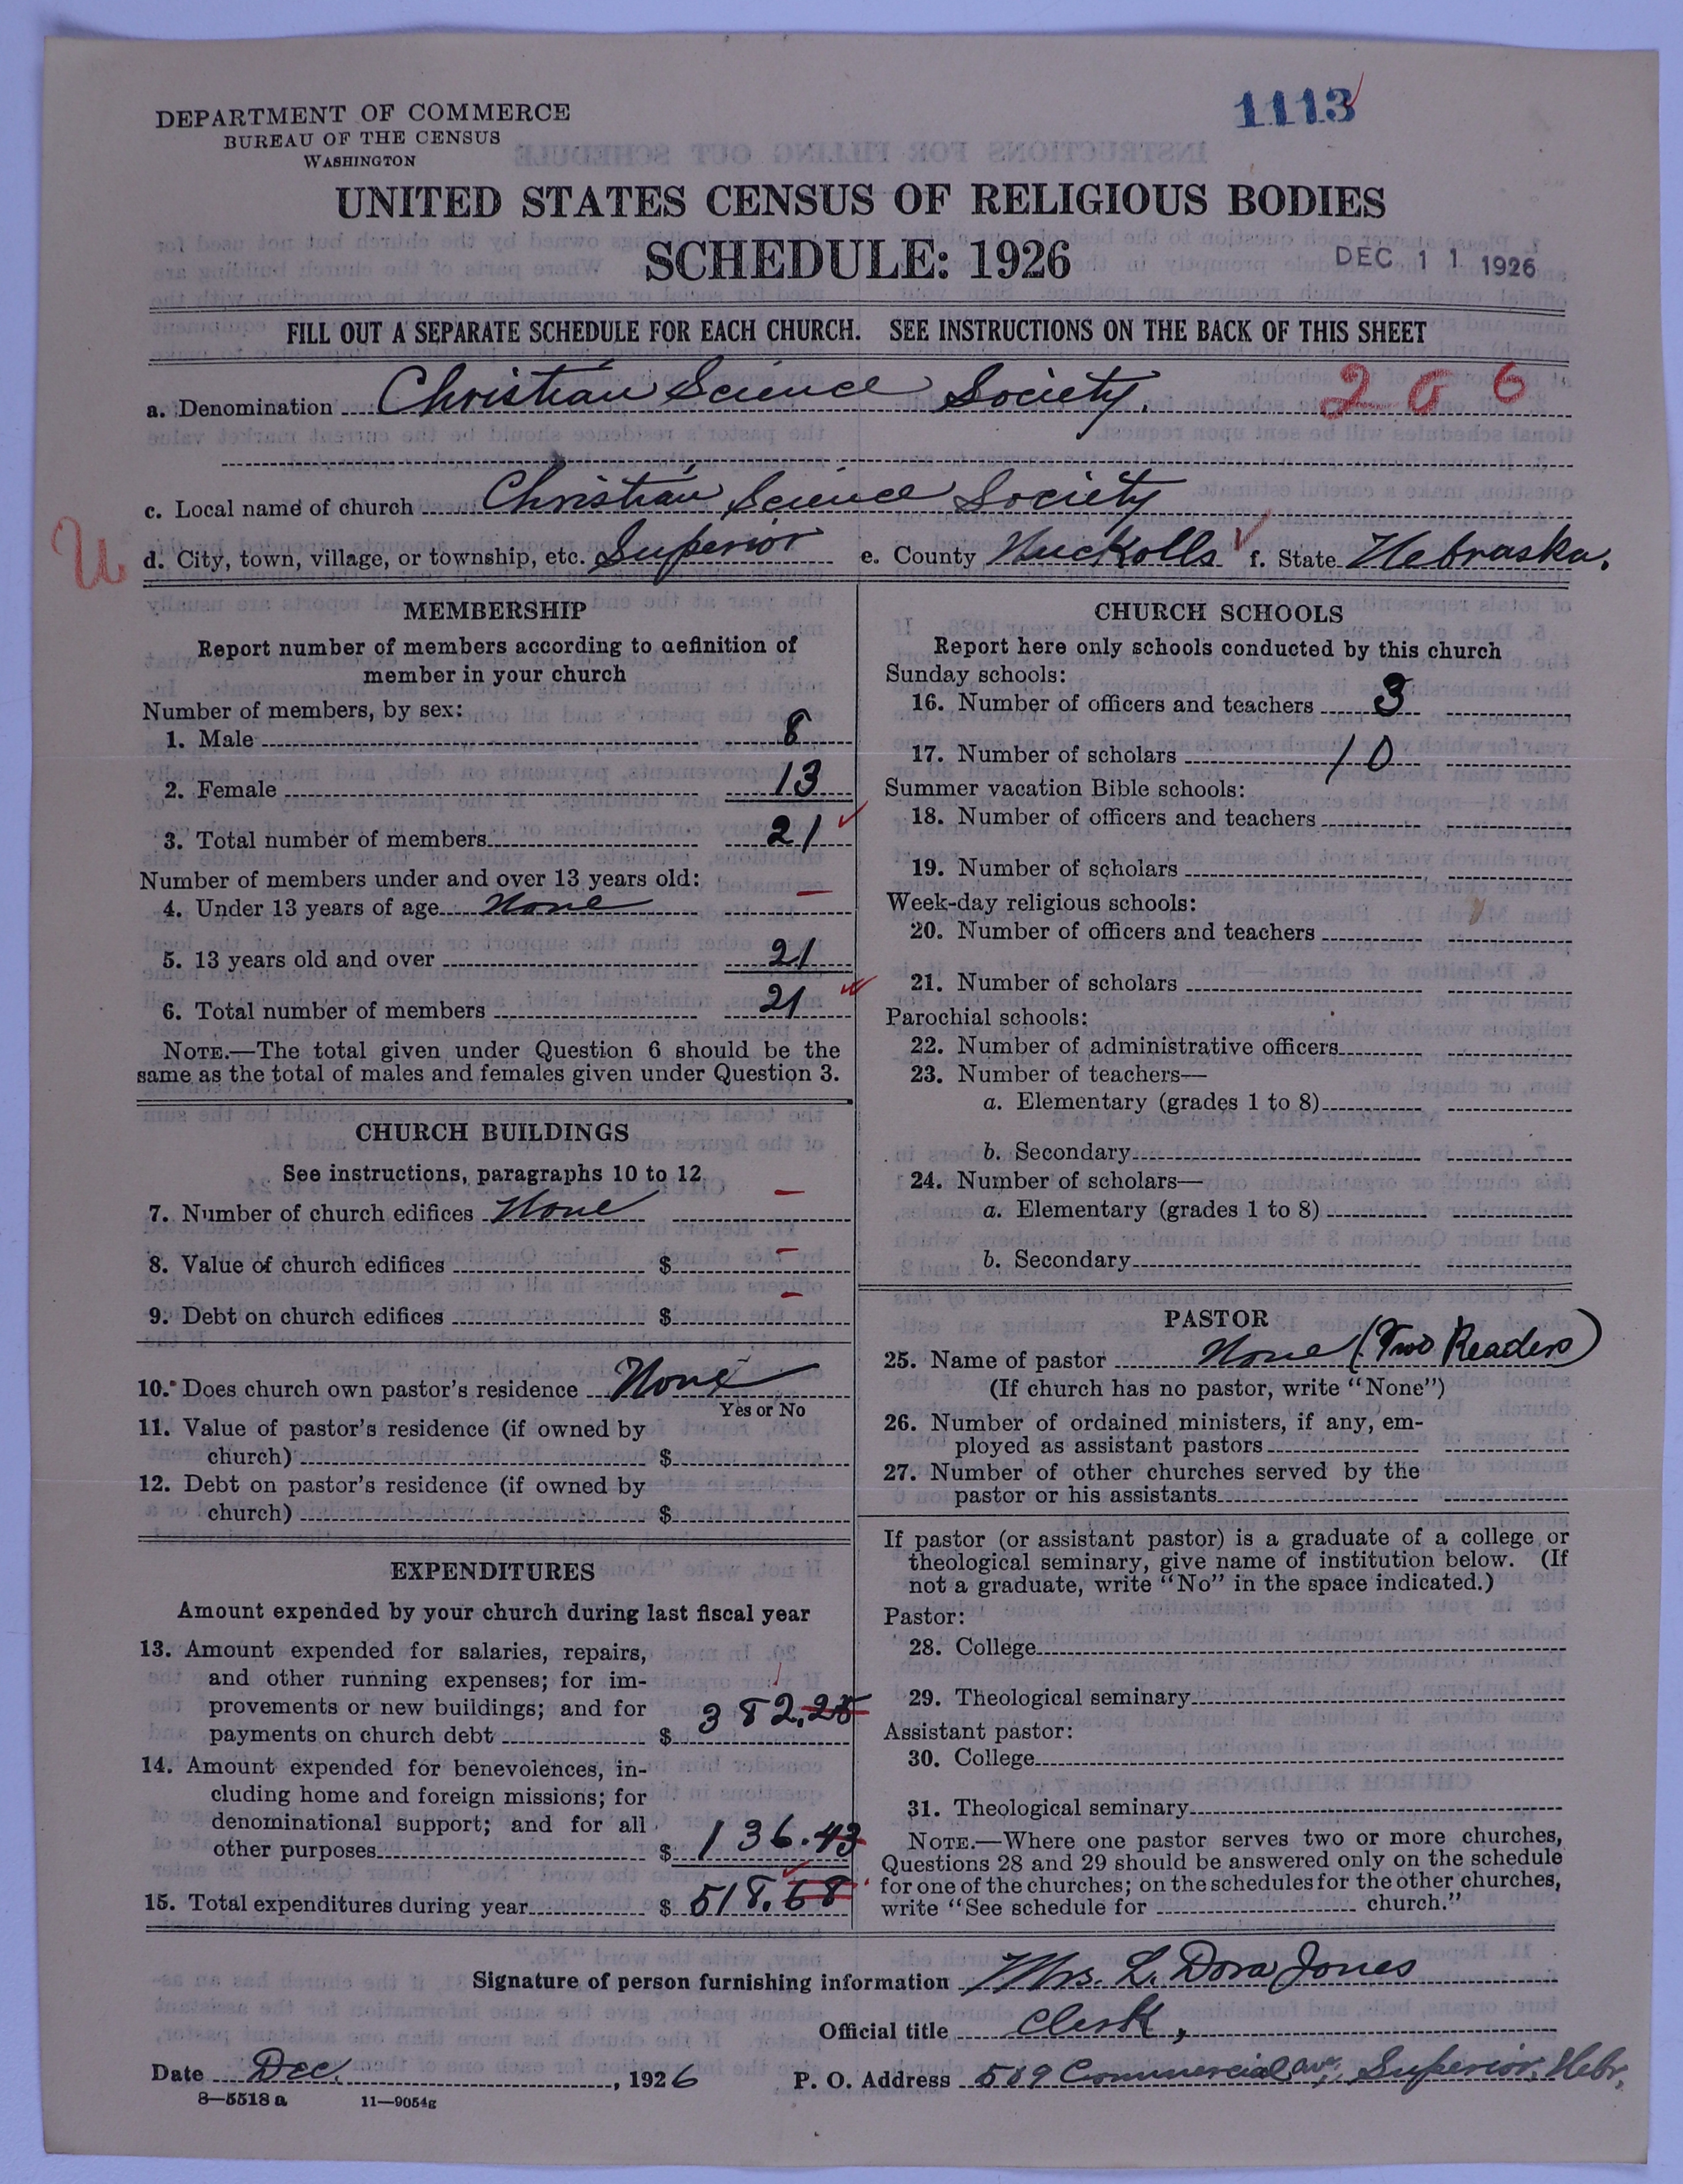 1113
DEPARTMENT OF COMMERCE
BUREAU OF THE CENSUS
WASHINGTON
UNITED STATES CENSUS OF RELIGIOUS BODIES
SCHEDULE: 1926
DEC 11 1926
FILL OUT A SEPARATE SCHEDULE FOR EACH CHURCH. SEE INSTRUCTIONS ON THE BACK OF THIS SHEET
a. Denomination Christian Science Society. 206
c. Local name of church Christian Science Society
U
d. City, town, village, or township, etc. Superior e. County Nuckolls f. State Nebraska.
MEMBERSHIP
Report number of members according to definition of
member in your church
Number of members, by sex:
1. Male 8
2. Female 13
3. Total number of members 21
Number of members under and over 13 years old:
4. Under 13 years of age None
5. 13 years old and over 21
6. Total number of members 21
NOTE.—The total given under Question 6 should be the
same as the total of males and females given under Question 3.
CHURCH BUILDINGS
See instructions, paragraphs 10 to 12
7. Number of church edifices None
8. Value of church edifices $
9. Debt on church edifices $
10. Does church own pastor's residence None
Yes or No
11. Value of pastor's residence (if owned by
church) $
12. Debt on pastor's residence (if owned by
church) $
EXPENDITURES
Amount expended by your church during last fiscal year
13. Amount expended for salaries, repairs,
and other running expenses; for im-
provements or new buildings; and for
payments on church debt $ 382.25
14. Amount expended for benevolences, in-
cluding home and foreign missions; for
denominational support; and for all
other purposes $ 136.43
15. Total expenditures during year $ 518.68
CHURCH SCHOOLS
Report here only schools conducted by this church
Sunday schools:
16. Number of officers and teachers 3
17. Number of scholars 10
Summer vacation Bible schools:
18. Number of officers and teachers
19. Number of scholars
Week-day religious schools:
20. Number of officers and teachers
21. Number of scholars
Parochial schools:
22. Number of administrative officers
23. Number of teachers—
a. Elementary (grades 1 to 8)
b. Secondary
24. Number of scholars—
a. Elementary (grades 1 to 8)
b. Secondary
PASTOR
25. Name of pastor None (Two Readers)
(If church has no pastor, write "None")
26. Number of ordained ministers, if any, em-
ployed as assistant pastors
27. Number of other churches served by the
pastor or his assistants
If pastor (or assistant pastor) is a graduate of a college or
theological seminary, give name of institution below. (If
not a graduate, write "No" in the space indicated.)
Pastor:
28. College
29. Theological seminary
Assistant pastor:
30. College
31. Theological seminary
NOTE.—Where one pastor serves two or more churches,
Questions 28 and 29 should be answered only on the schedule
for one of the churches; on the schedules for the other churches,
write "See schedule for church."
Signature of person furnishing information Mrs. L. Dora Jones
Official title Clerk,
Date Dec. , 1926 P. O. Address 509 Commercial ave, Superior, Nebr.
8—5518 a 11—9054g